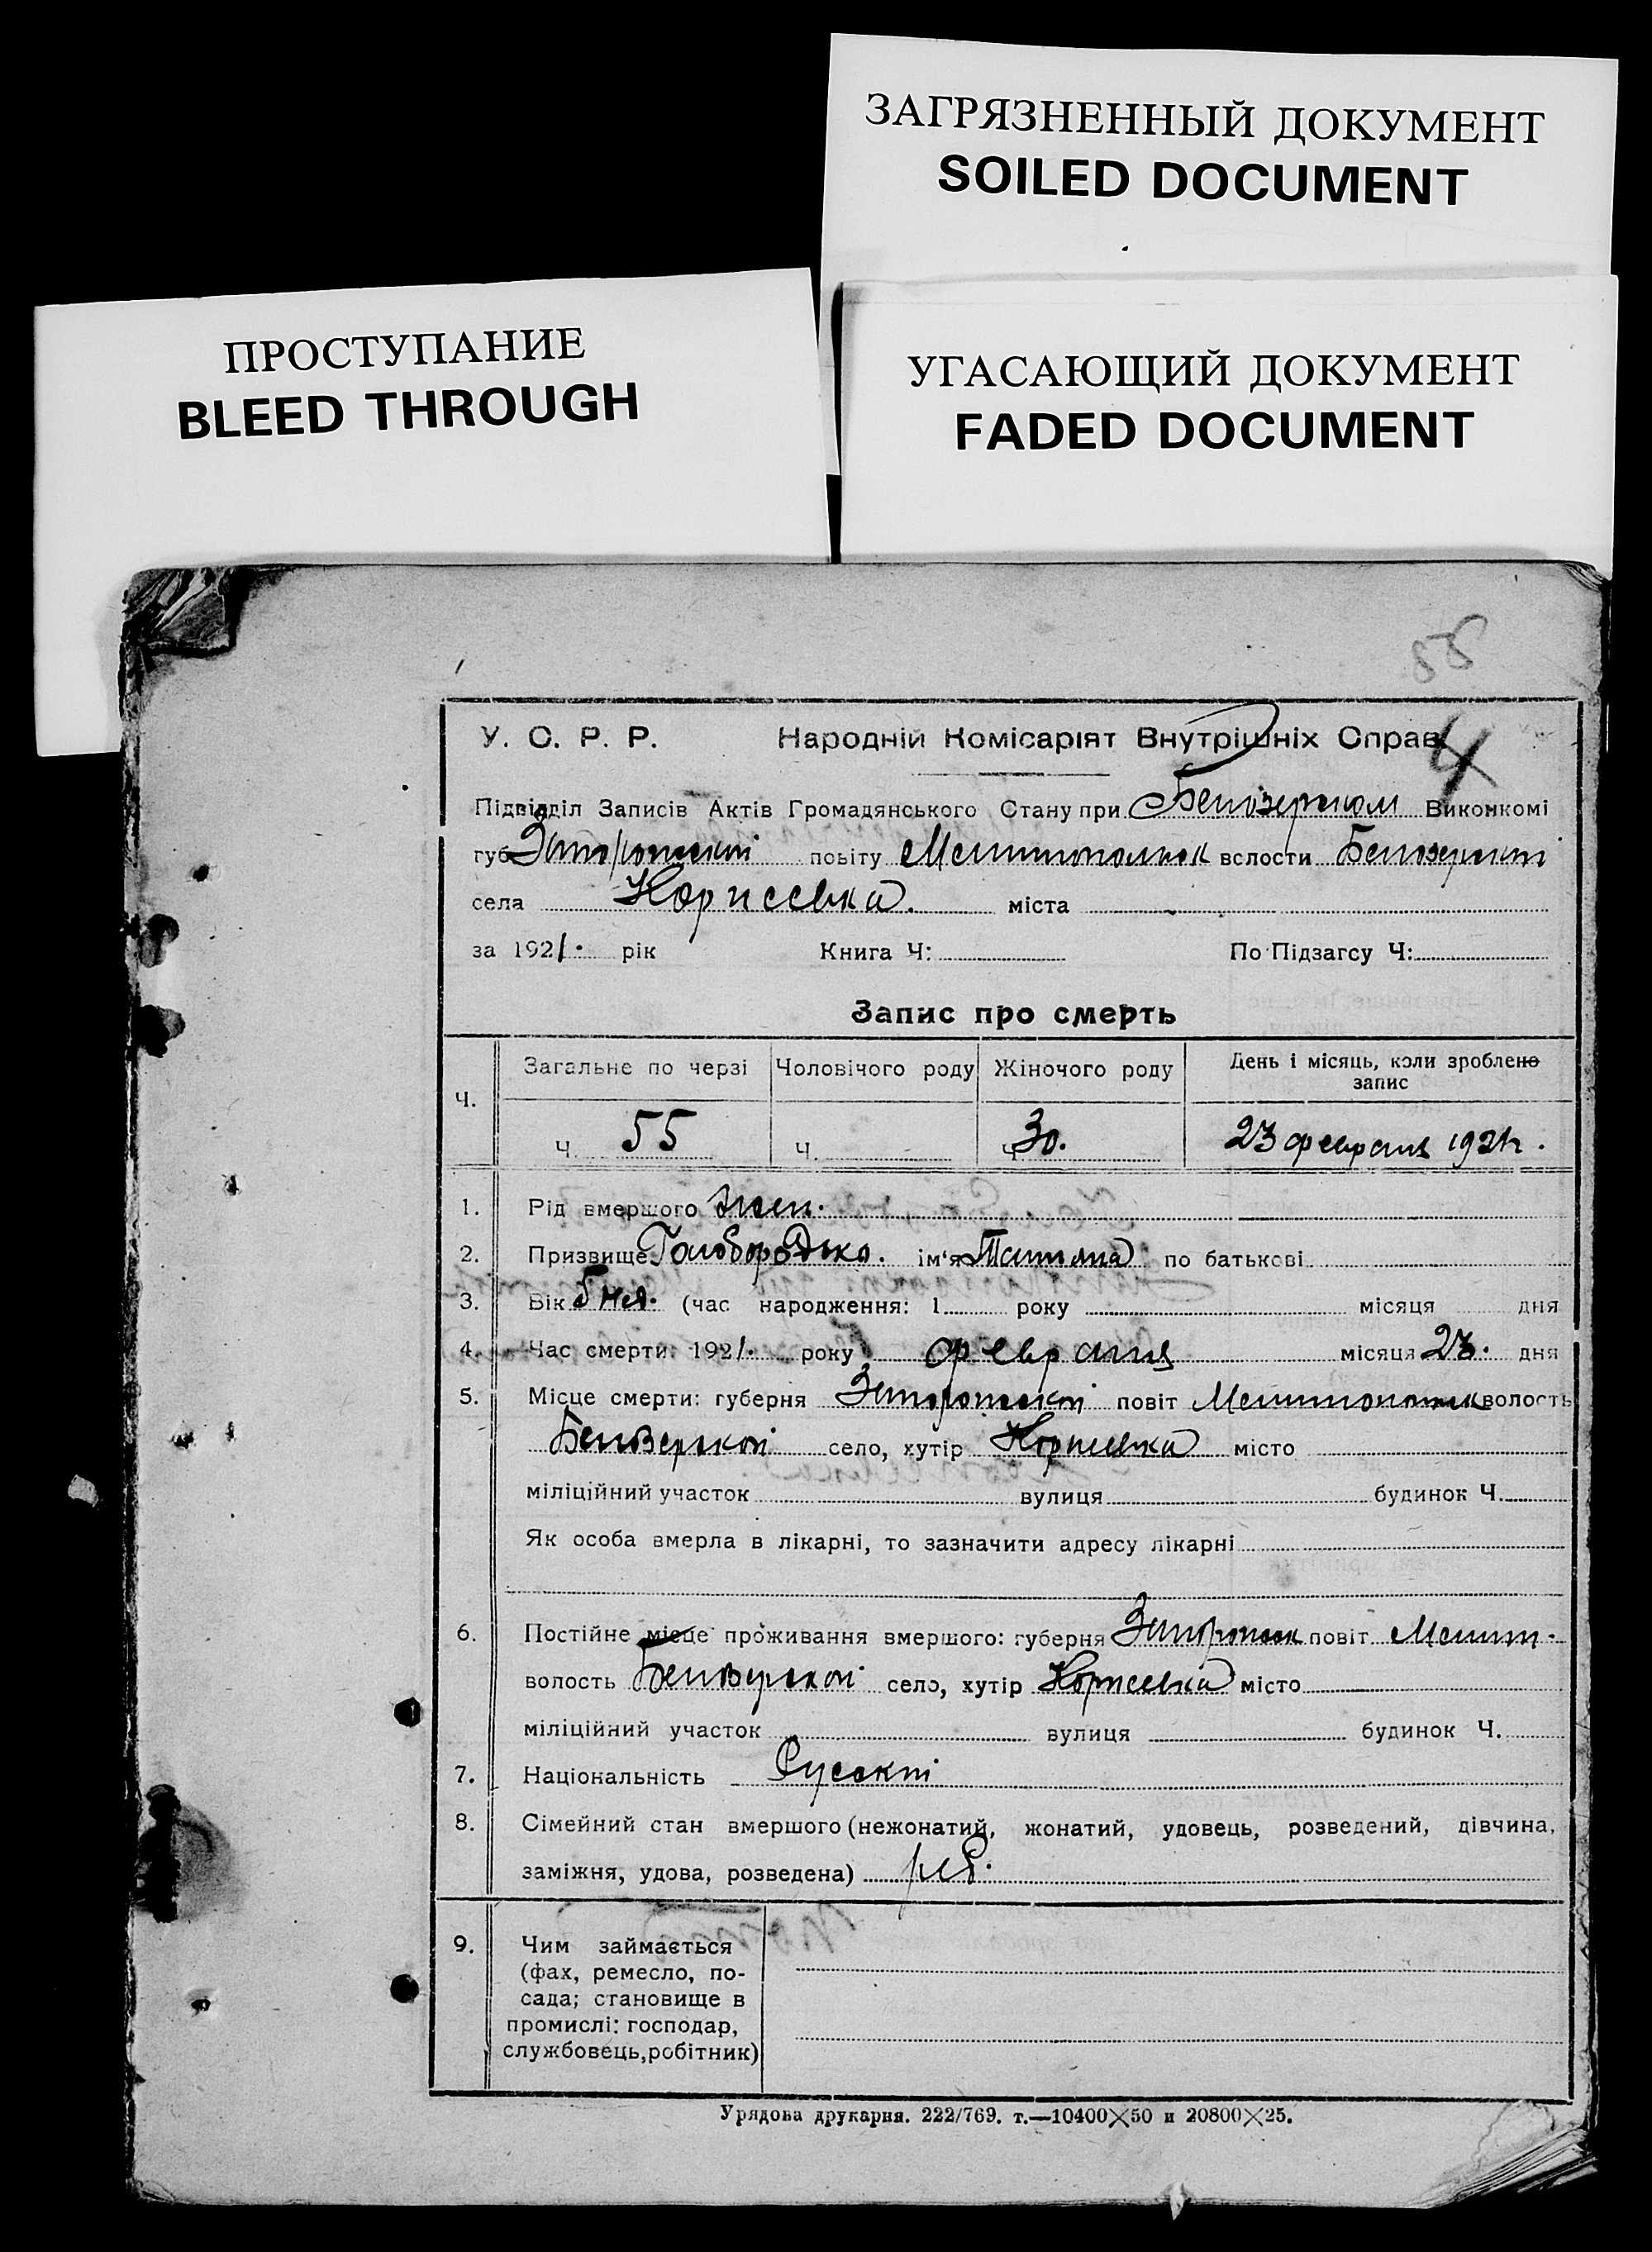 ЗАГРЯЗНЕННЫЙ ДОКУМЕНТ
SOILED DOCUMENT
ПРОСТУПАНИЕ
BLEED THROUGH
УГАСАЮЩИЙ ДОКУМЕНТ
FADED DOCUMENT
У. С. Р. Р. Народній Комісаріят Внутрішніх Справ 4
Підвідділ Записів Актів Громадянського Стану при Белозерском Виконкомі
губ Запорожской повіту Мелитопольск волости Белозерской
села міста
за 1921. рік Книга Ч: По Підзагсу Ч:
Запис про смерть
Ч. Загальне по черзі Чоловічого роду Жіночого роду День і місяць, коли зроблено запис
Ч. 55 Ч. Ч. 30. 23 февраля 1921 г.
1. Рід вмершого жен.
2. Призвище Голобородько. ім'я Татьяна по батькові
3. Вік 5 нед. (час народження: 1 року місяця дня
4. Час смерти: 1921. року февраля місяця 23. дня
5. Місце смерти: губерня Запорожской повіт Мелитопольск волость
Белозерской село, хутір місто
міліційний участок вулиця будинок Ч.
Як особа вмерла в лікарні, то зазначити адресу лікарні
6. Постійне місце проживання вмершого: губерня Запорожск повіт Мелит.
волость Белозерской село, хутір місто
міліційний участок вулиця будинок Ч.
7. Національність Русский
8. Сімейний стан вмершого (нежонатий, жонатий, удовець, розведений, дівчина,
заміжня, удова, розведена) реб.
9. Чим займається
(фах, ремесло, по-
сада; становище в
промислі: господар,
службовець, робітник)
Урядова друкарня. 222/769. т.—10400×50 и 20800×25.